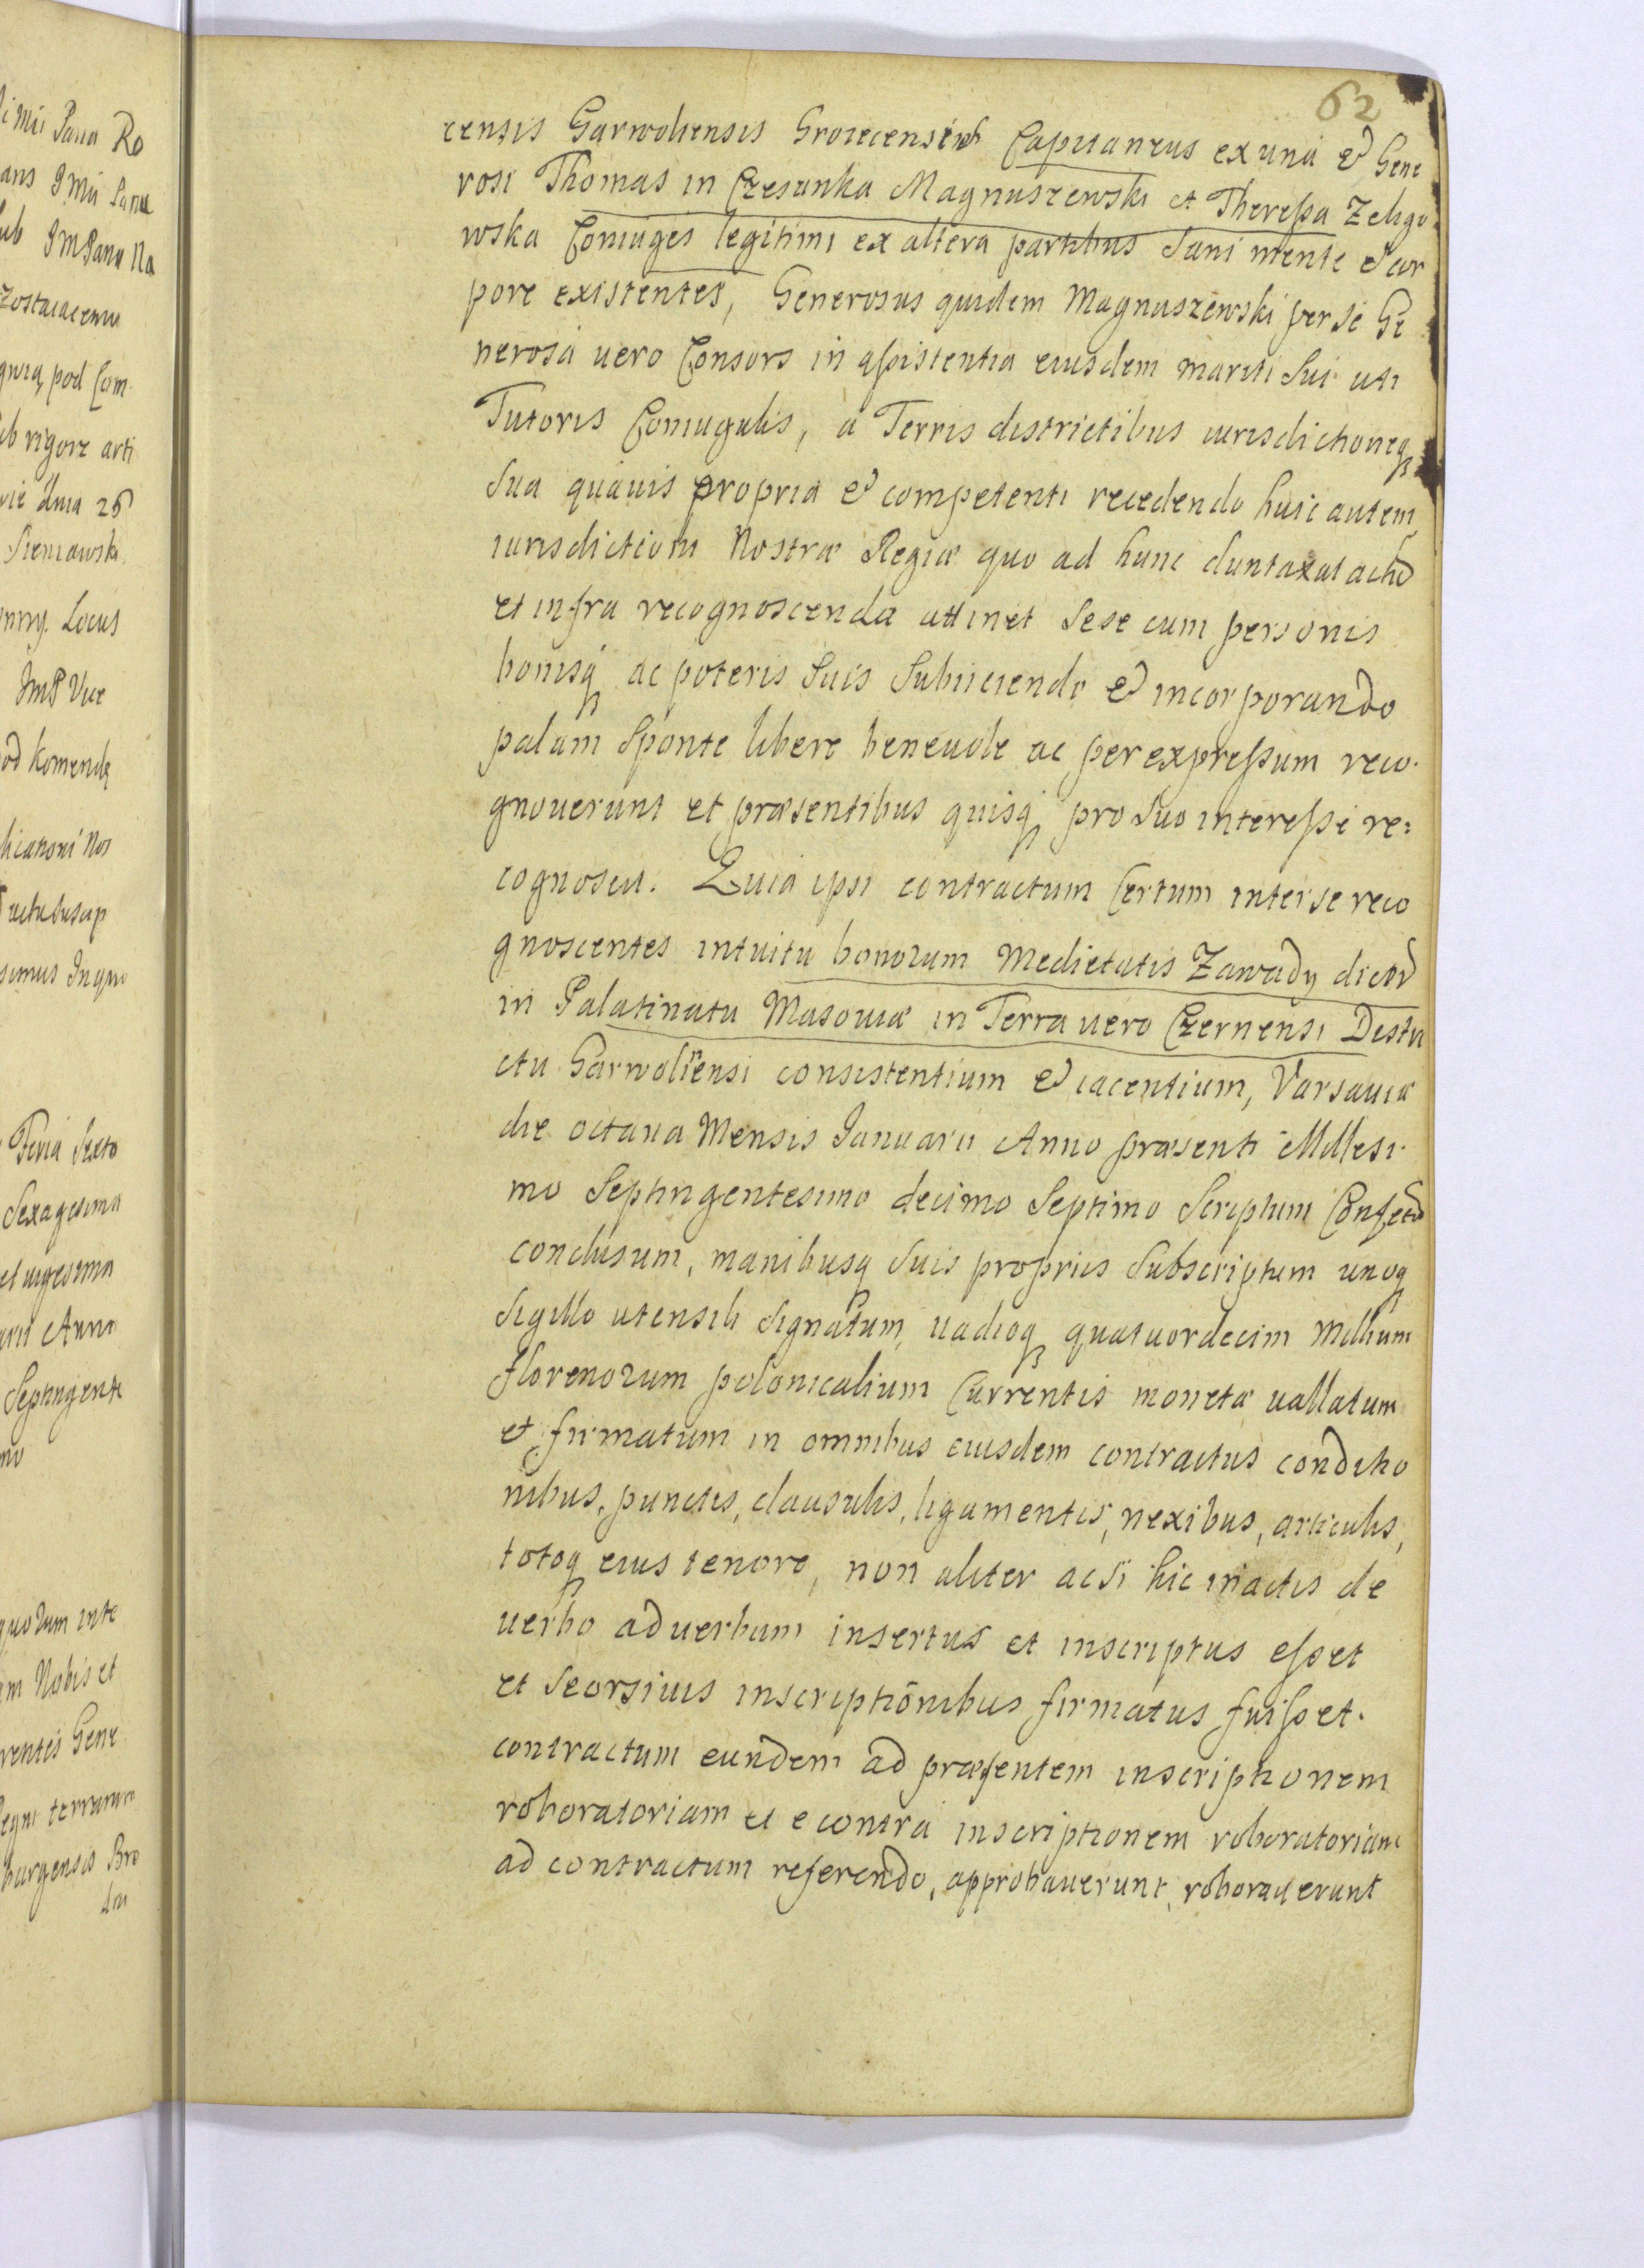 62
censis Garwoliensis Grojecensis Capitaneus ex una & Gene
rosi Thomas in Czesanka Magnuszewski et Theressa Zeligo
wska Coniuges legitimi ex altera partibus Sani mente & cor
pore existentes, Generosus quidem Magnuszewski per se Ge
nerosa uero Consors in assistentia eiusdem mariti Sui uti
Tutoris Coniugalis, a Terris districtibus iurisdictioneq
Sua quauis propria & competenti recedendo huic autem
iurisdictioni Nostræ Regiæ quo ad hunc duntaxat actū
et infra recognoscenda attinet Sese cum personis
bonisq ac poteris Suis Subiiciendo & incorporando
palam Sponte libere beneuole ac per expressum reco.
gnouerunt et præsentibus quisq pro Suo interesse re:
cognoscit. Quia ipsi contractum Certum inter se reco
gnoscentes intuitu bonorum Medietatis Zawady dictor
in Palatinatu Masouiæ in Terra uero Czernensi Distri
ctu Garwoliensi consistentium & iacentium, Varsauiæ
die octaua Mensis Januarii Anno præsenti Millesi.
mo Septingentesimo decimo Septimo Scriptum Confectū
conclusum, manibusq Suis propriis Subscriptum unoq
Sigillo utensili Signatum, uadioq quatuordecim Millium
florenorum polonicalium Currentis monetæ uallatum
et firmatum in omnibus eiusdem contractus conditio
nibus, punctis, clausulis, ligamentis, nexibus, articulis,
totoq eius tenore, non aliter ac Si hic in actis de
uerbo ad uerbum insertus et inscriptus esset
et Seorsiuis inscriptiōnibus firmatus fuisset.
contractum eundem ad præsentem inscriptionem
roboratoriam et e contra inscriptionem roboratoriam
ad contractum referendo, approbauerunt, roborauerunt